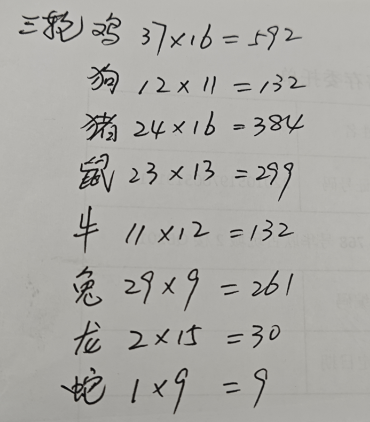 三轮 鸡 37×16=592
狗 12×11=132
猪 24×16=384
鼠 23×13=299
牛 11×12=132
兔 29×9=261
龙 2×15=30
蛇 1×9=9